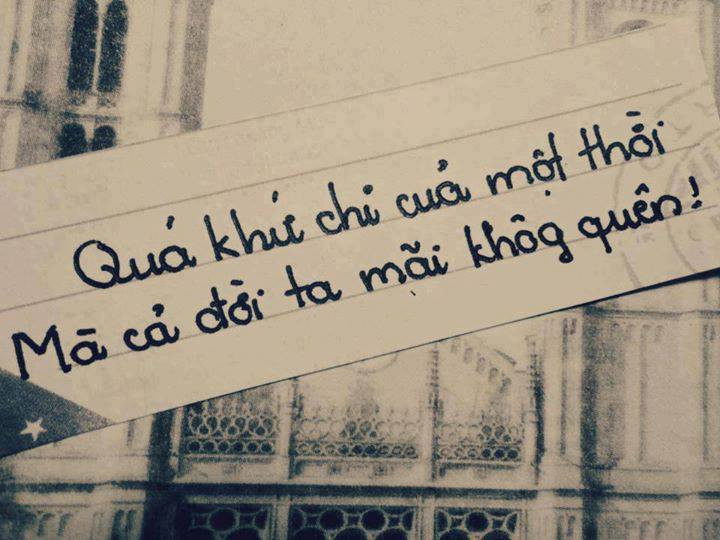 Quá khứ chỉ cuả một thời
Mà cả đời ta mãi khôg quên!